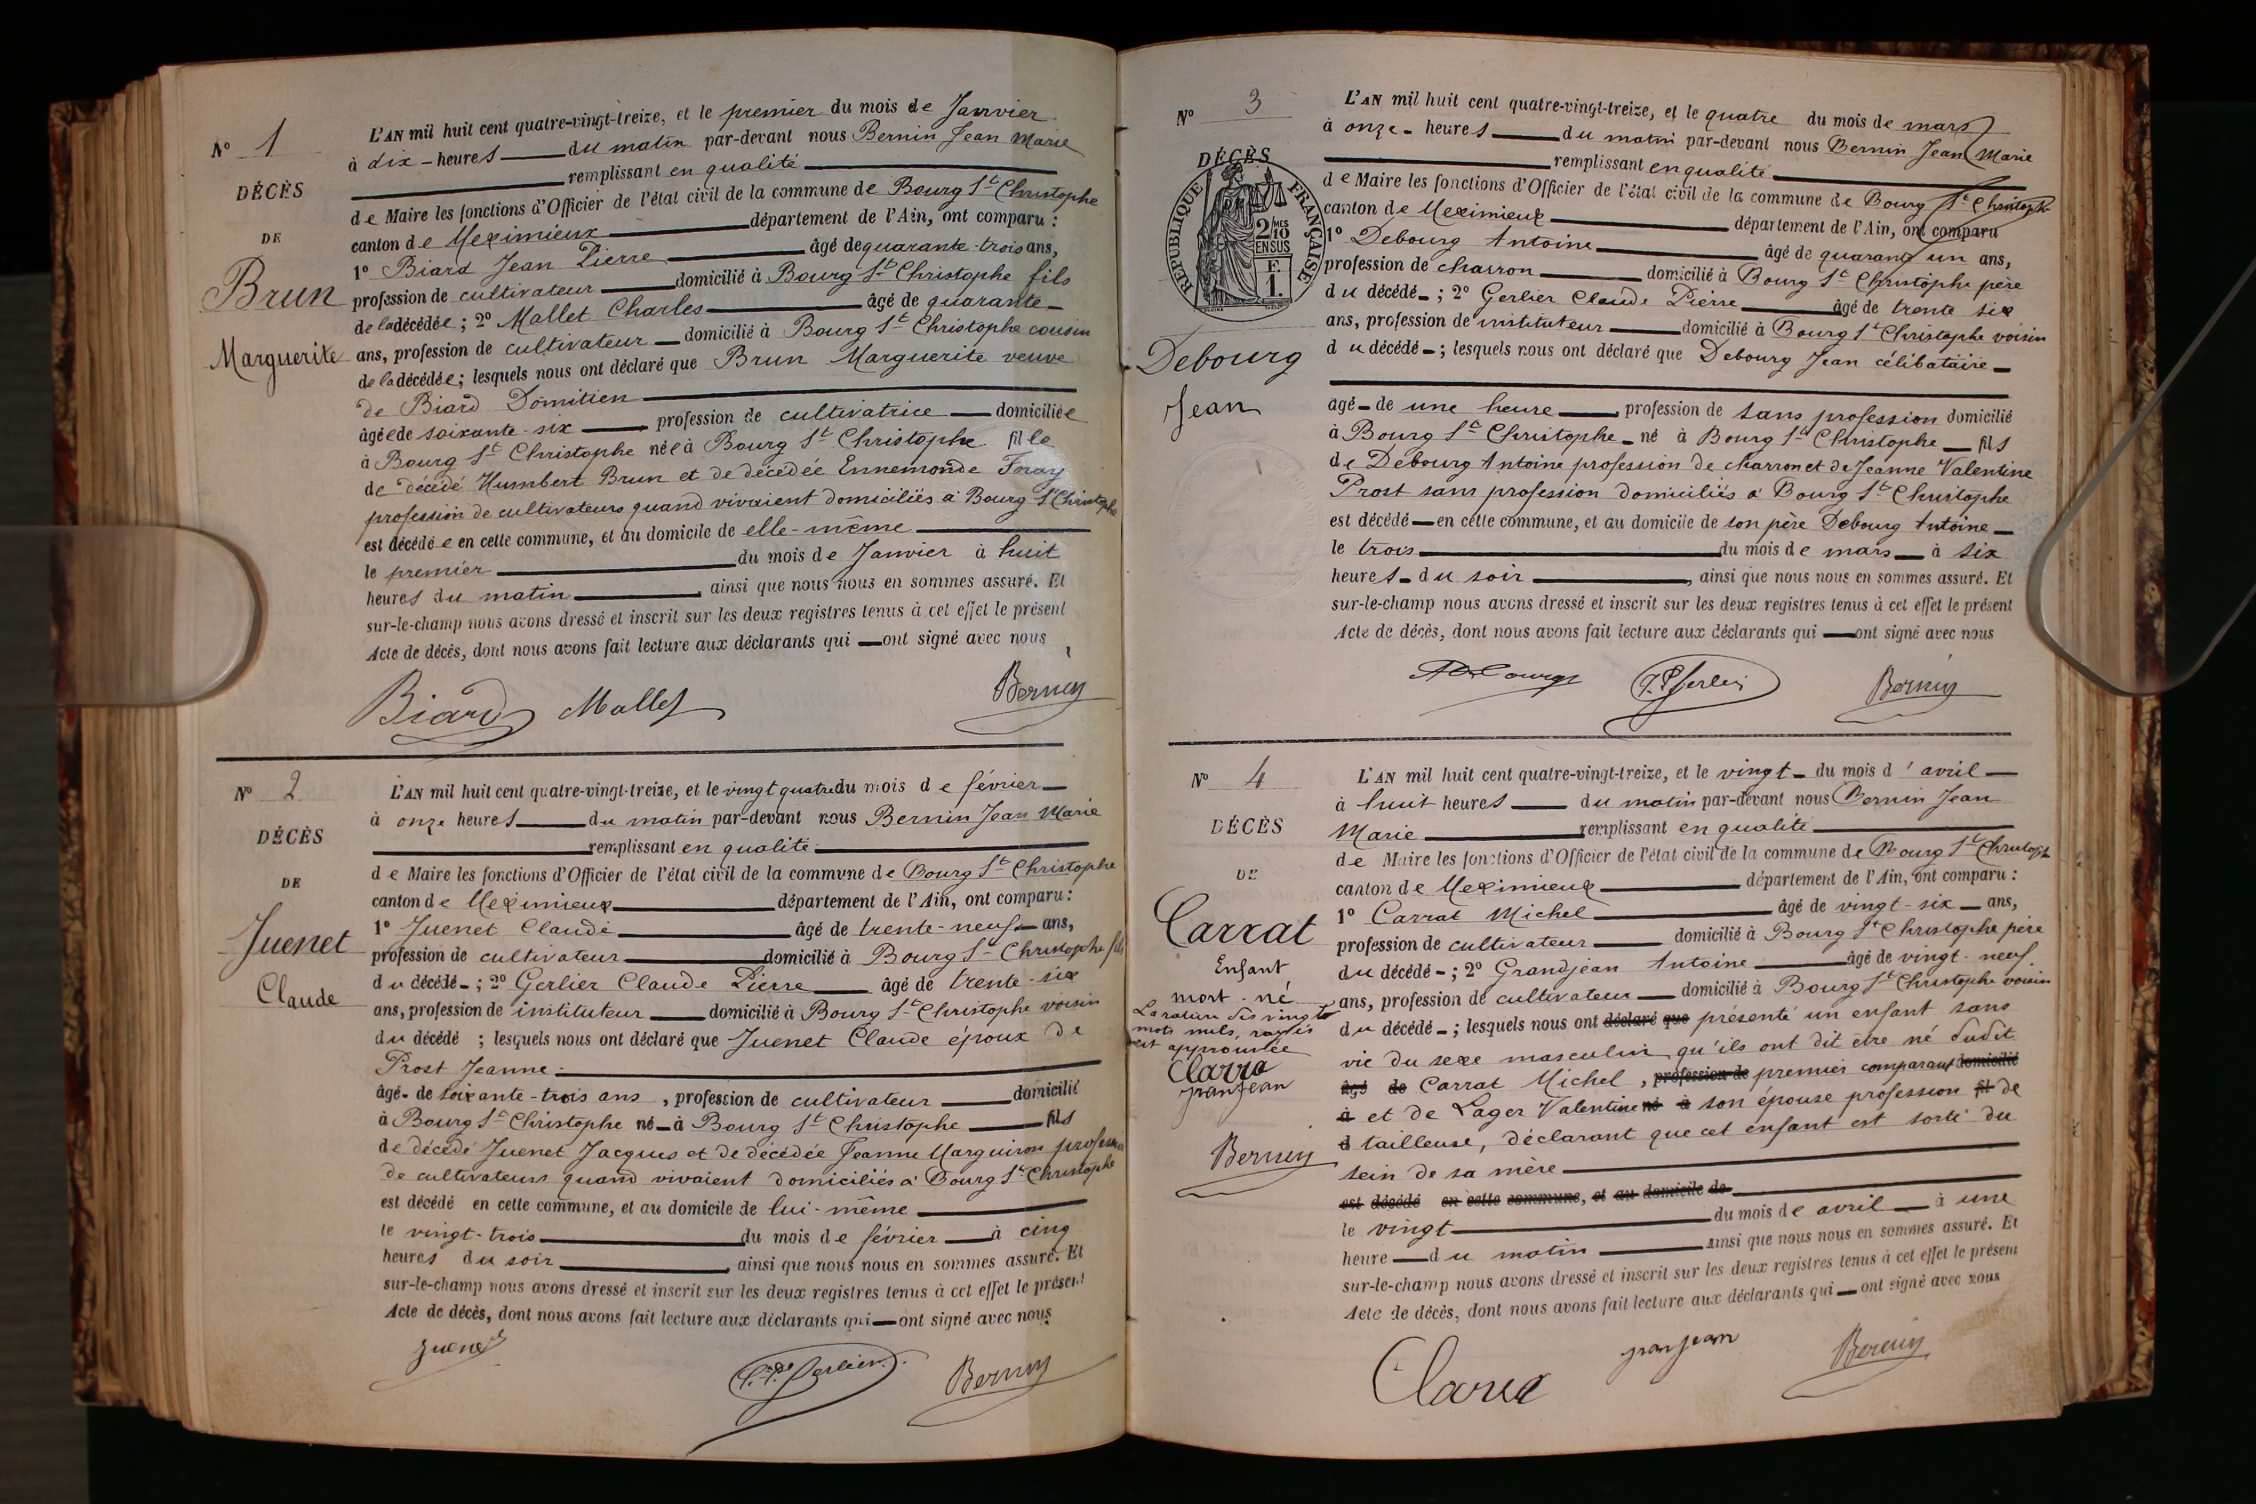 N° 1
DÉCÈS
DE
Brun
Marguerite
L'AN mil huit cent quatre-vingt-treize, et le premier du mois de Janvier
à dix - heures du matin par-devant nous Bernin Jean Marie
remplissant en qualité
de Maire les fonctions d'Officier de l'état civil de la commune de Bourg St Christophe
canton de Meximieux département de l'Ain, ont comparu :
1° Biard Jean Pierre âgé de quarante-trois ans,
profession de cultivateur domicilié à Bourg St Christophe fils
de la décédée ; 2° Mollet Charles âgé de quarante
ans, profession de cultivateur domicilié à Bourg St Christophe cousin
de la décédée ; lesquels nous ont déclaré que Brun Marguerite veuve
de Biard Domitien
âgée de soixante-six profession de cultivatrice domiciliée
à Bourg St Christophe née à Bourg St Christophe fille
de décédé Humbert Brun et de décédée Ennemonde Foray
profession de cultivateurs quand vivaient domiciliés à Bourg St Christophe
est décédée en cette commune, et au domicile de elle-même
le premier du mois de Janvier à huit
heures du matin, ainsi que nous nous en sommes assuré. Et
sur-le-champ nous avons dressé et inscrit sur les deux registres tenus à cet effet le présent
Acte de décès, dont nous avons fait lecture aux déclarants qui ont signé avec nous
Biard Mollet Bernin
N° 2
DÉCÈS
DE
Juenet
Claude
L'AN mil huit cent quatre-vingt-treize, et le vingt quatre du mois de février
à onze heures du matin par-devant nous Bernin Jean Marie
remplissant en qualité
de Maire les fonctions d'Officier de l'état civil de la commune de Bourg St Christophe
canton de Meximieux département de l'Ain, ont comparu :
1° Juenet Claude âgé de trente-neuf ans,
profession de cultivateur domicilié à Bourg St Christophe fils
du décédé ; 2° Gerlier Claude Pierre âgé de trente-six
ans, profession de instituteur domicilié à Bourg St Christophe voisin
du décédé ; lesquels nous ont déclaré que Juenet Claude époux de
Prost Jeanne
âgé de soixante-trois ans, profession de cultivateur domicilié
à Bourg St Christophe né à Bourg St Christophe fils
de décédé Juenet Jacques et de décédée Jeanne Marguiron profession
de cultivateurs quand vivaient domiciliés à Bourg St Christophe
est décédé en cette commune, et au domicile de lui-même
le vingt-trois du mois de février à cinq
heures du soir, ainsi que nous nous en sommes assuré. Et
sur-le-champ nous avons dressé et inscrit sur les deux registres tenus à cet effet le présent
Acte de décès, dont nous avons fait lecture aux déclarants qui ont signé avec nous
Juenet C.P. Gerlier Bernin
N° 3
DÉCÈS
RÉPUBLIQUE FRANÇAISE
2/10MES
EN SUS
F.
1.
Debourg
Jean
L'AN mil huit cent quatre-vingt-treize, et le quatre du mois de mars
à onze - heures du matin par-devant nous Bernin Jean Marie
remplissant en qualité
de Maire les fonctions d'Officier de l'état civil de la commune de Bourg St Christophe
canton de Meximieux département de l'Ain, ont comparu
1° Debourg Antoine âgé de quarante un ans,
profession de charron domicilié à Bourg St Christophe père
du décédé ; 2° Gerlier Claude Pierre âgé de trente six
ans, profession de instituteur domicilié à Bourg St Christophe voisin
du décédé ; lesquels nous ont déclaré que Debourg Jean célibataire
âgé de une heure, profession de sans profession domicilié
à Bourg St Christophe né à Bourg St Christophe fils
de Debourg Antoine profession de charron et de Jeanne Valentine
Prost sans profession domiciliés à Bourg St Christophe
est décédé en cette commune, et au domicile de son père Debourg Antoine
le trois du mois de mars à six
heures du soir, ainsi que nous nous en sommes assuré. Et
sur-le-champ nous avons dressé et inscrit sur les deux registres tenus à cet effet le présent
Acte de décès, dont nous avons fait lecture aux déclarants qui ont signé avec nous
Debourg C.P. Gerlier Bernin
N° 4
DÉCÈS
DE
Carrat
Enfant
mort-né
La rature des vingt
mots nuls, rayés
est approuvée
Carra
granjean
Bernin
L'AN mil huit cent quatre-vingt-treize, et le vingt du mois d'avril
à huit heures du matin par-devant nous Bernin Jean
Marie remplissant en qualité
de Maire les fonctions d'Officier de l'état civil de la commune de Bourg St Christophe
canton de Meximieux département de l'Ain, ont comparu :
1° Carrat Michel âgé de vingt-six ans,
profession de cultivateur domicilié à Bourg St Christophe père
du décédé ; 2° Grandjean Antoine âgé de vingt-neuf
ans, profession de cultivateur domicilié à Bourg St Christophe voisin
du décédé ; lesquels nous ont déclaré que présenté un enfant sans
vie du sexe masculin qu'ils ont dit être né dudit
âgé de Carrat Michel, profession de premier comparant domicilié
à et de Lager Valentine né à son épouse profession fil de
d tailleuse, déclarant que cet enfant est sorti du
sein de sa mère
est décédé en cette commune, et au domicile de
le vingt du mois de avril à une
heure du matin ainsi que nous nous en sommes assuré. Et
sur-le-champ nous avons dressé et inscrit sur les deux registres tenus à cet effet le présent
Acte de décès, dont nous avons fait lecture aux déclarants qui ont signé avec nous
Carra granjean Bernin